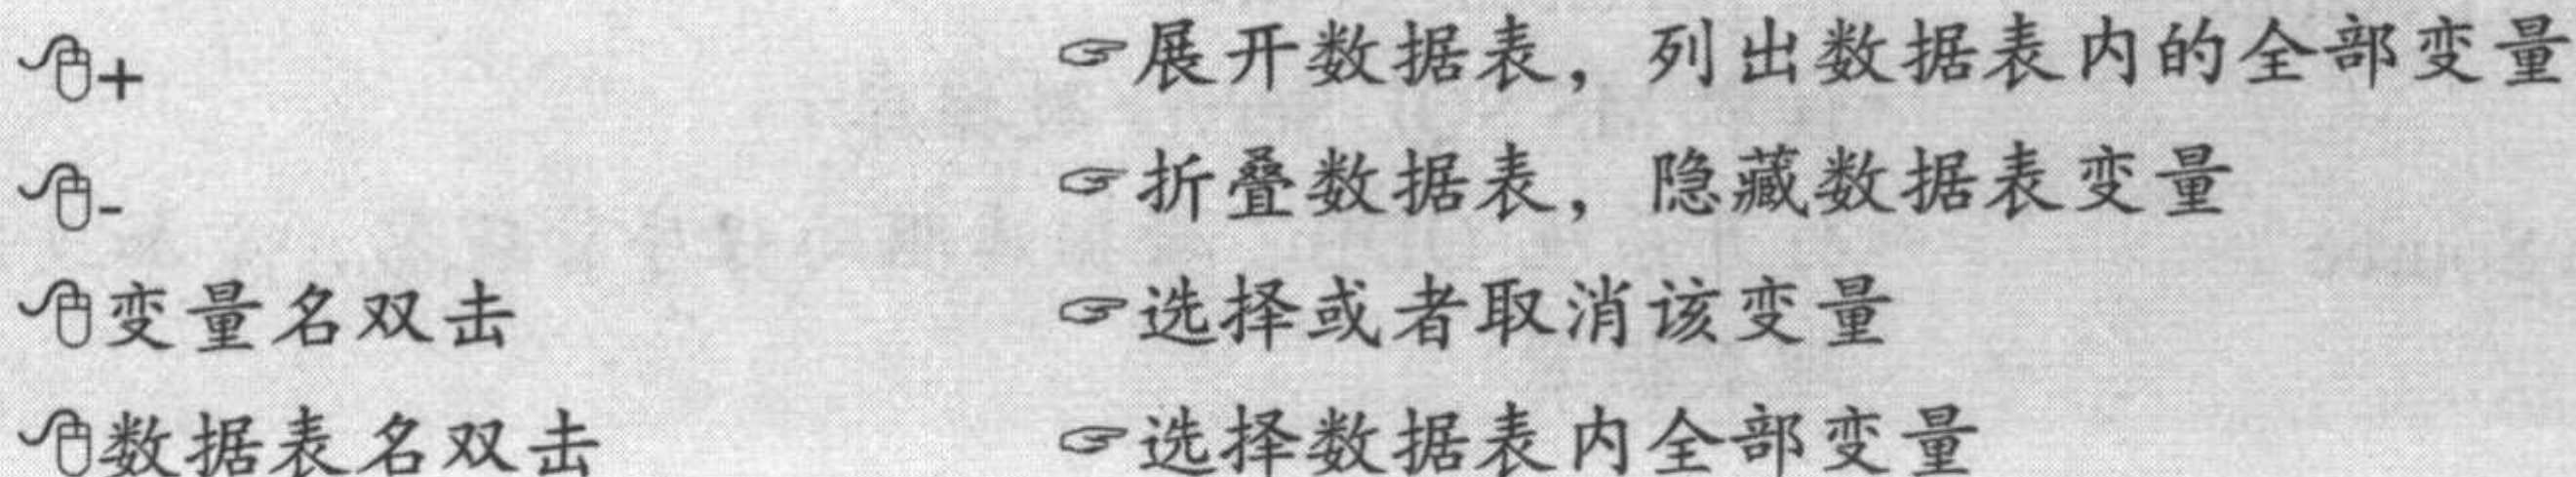 🖰+ ☞展开数据表，列出数据表内的全部变量
🖰- ☞折叠数据表，隐藏数据表变量
🖰变量名双击 ☞选择或者取消该变量
🖰数据表名双击 ☞选择数据表内全部变量